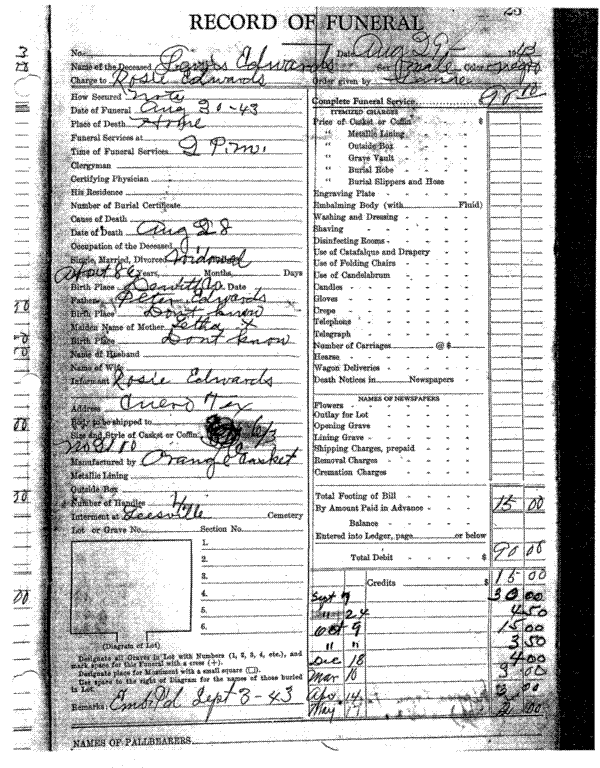 RECORD OF FUNERAL
No. Date Aug 29 - 1943
Name of the Deceased Edwards Sex Female Color Negro
Charge to Rosie Edwards Order given by Same
How Secured Note
Date of Funeral Aug 30-43
Place of Death Home
Funeral Services at
Time of Funeral Services 2 P.m.
Clergyman
Certifying Physician
His Residence
Number of Burial Certificate
Cause of Death
Date of Death Aug 28
Occupation of the Deceased
Single, Married, Divorced Widowed
About 86 Years, Months, Days
Birth Place Dewitt Co. Date
Father Peter Edwards
Birth Place Dont know
Maiden Name of Mother Letha X
Birth Place Dont know
Name of Husband
Name of Wife
Informant Rosie Edwards
Address Cuero Tex
Body to be shipped to
Size and Style of Casket or Coffin 6/3
Manufactured by Orange Casket
Metallic Lining
Outside Box
Number of Handles
Interment at Leesville Cemetery
Lot or Grave No. Section No.
1.
2.
3.
4.
5.
6.
(Diagram of Lot)
Designate all Graves in Lot with Numbers (1, 2, 3, 4, etc.), and
mark space for this Funeral with a cross (+).
Designate place for Monument with a small square (□).
Use space to the right of Diagram for the names of those buried
in Lot.
Remarks: Emb Pd Sept 3-43
NAMES OF PALLBEARERS
Complete Funeral Service
ITEMIZED CHARGES
Price of Casket or Coffin $
" Metallic Lining
" Outside Box
" Grave Vault
" Burial Robe
" Burial Slippers and Hose
Engraving Plate
Embalming Body (with Fluid)
Washing and Dressing
Shaving
Disinfecting Rooms
Use of Catafalque and Drapery
Use of Folding Chairs
Use of Candelabrum
Candles
Gloves
Crepe
Telephone
Telegraph
Number of Carriages @ $
Hearse
Wagon Deliveries
Death Notices in Newspapers
NAMES OF NEWSPAPERS
Flowers
Outlay for Lot
Opening Grave
Lining Grave
Shipping Charges, prepaid
Removal Charges
Cremation Charges
Total Footing of Bill
By Amount Paid in Advance 15 00
Balance
Entered into Ledger, page or below
Total Debit $ 90 00
Credits $ 15 00
Sept 9 30 00
" 24 4 50
Oct 9 15 00
" " 3 50
Dec 18 4 00
Mar 10 3 00
Apr 14 00
May 2 00